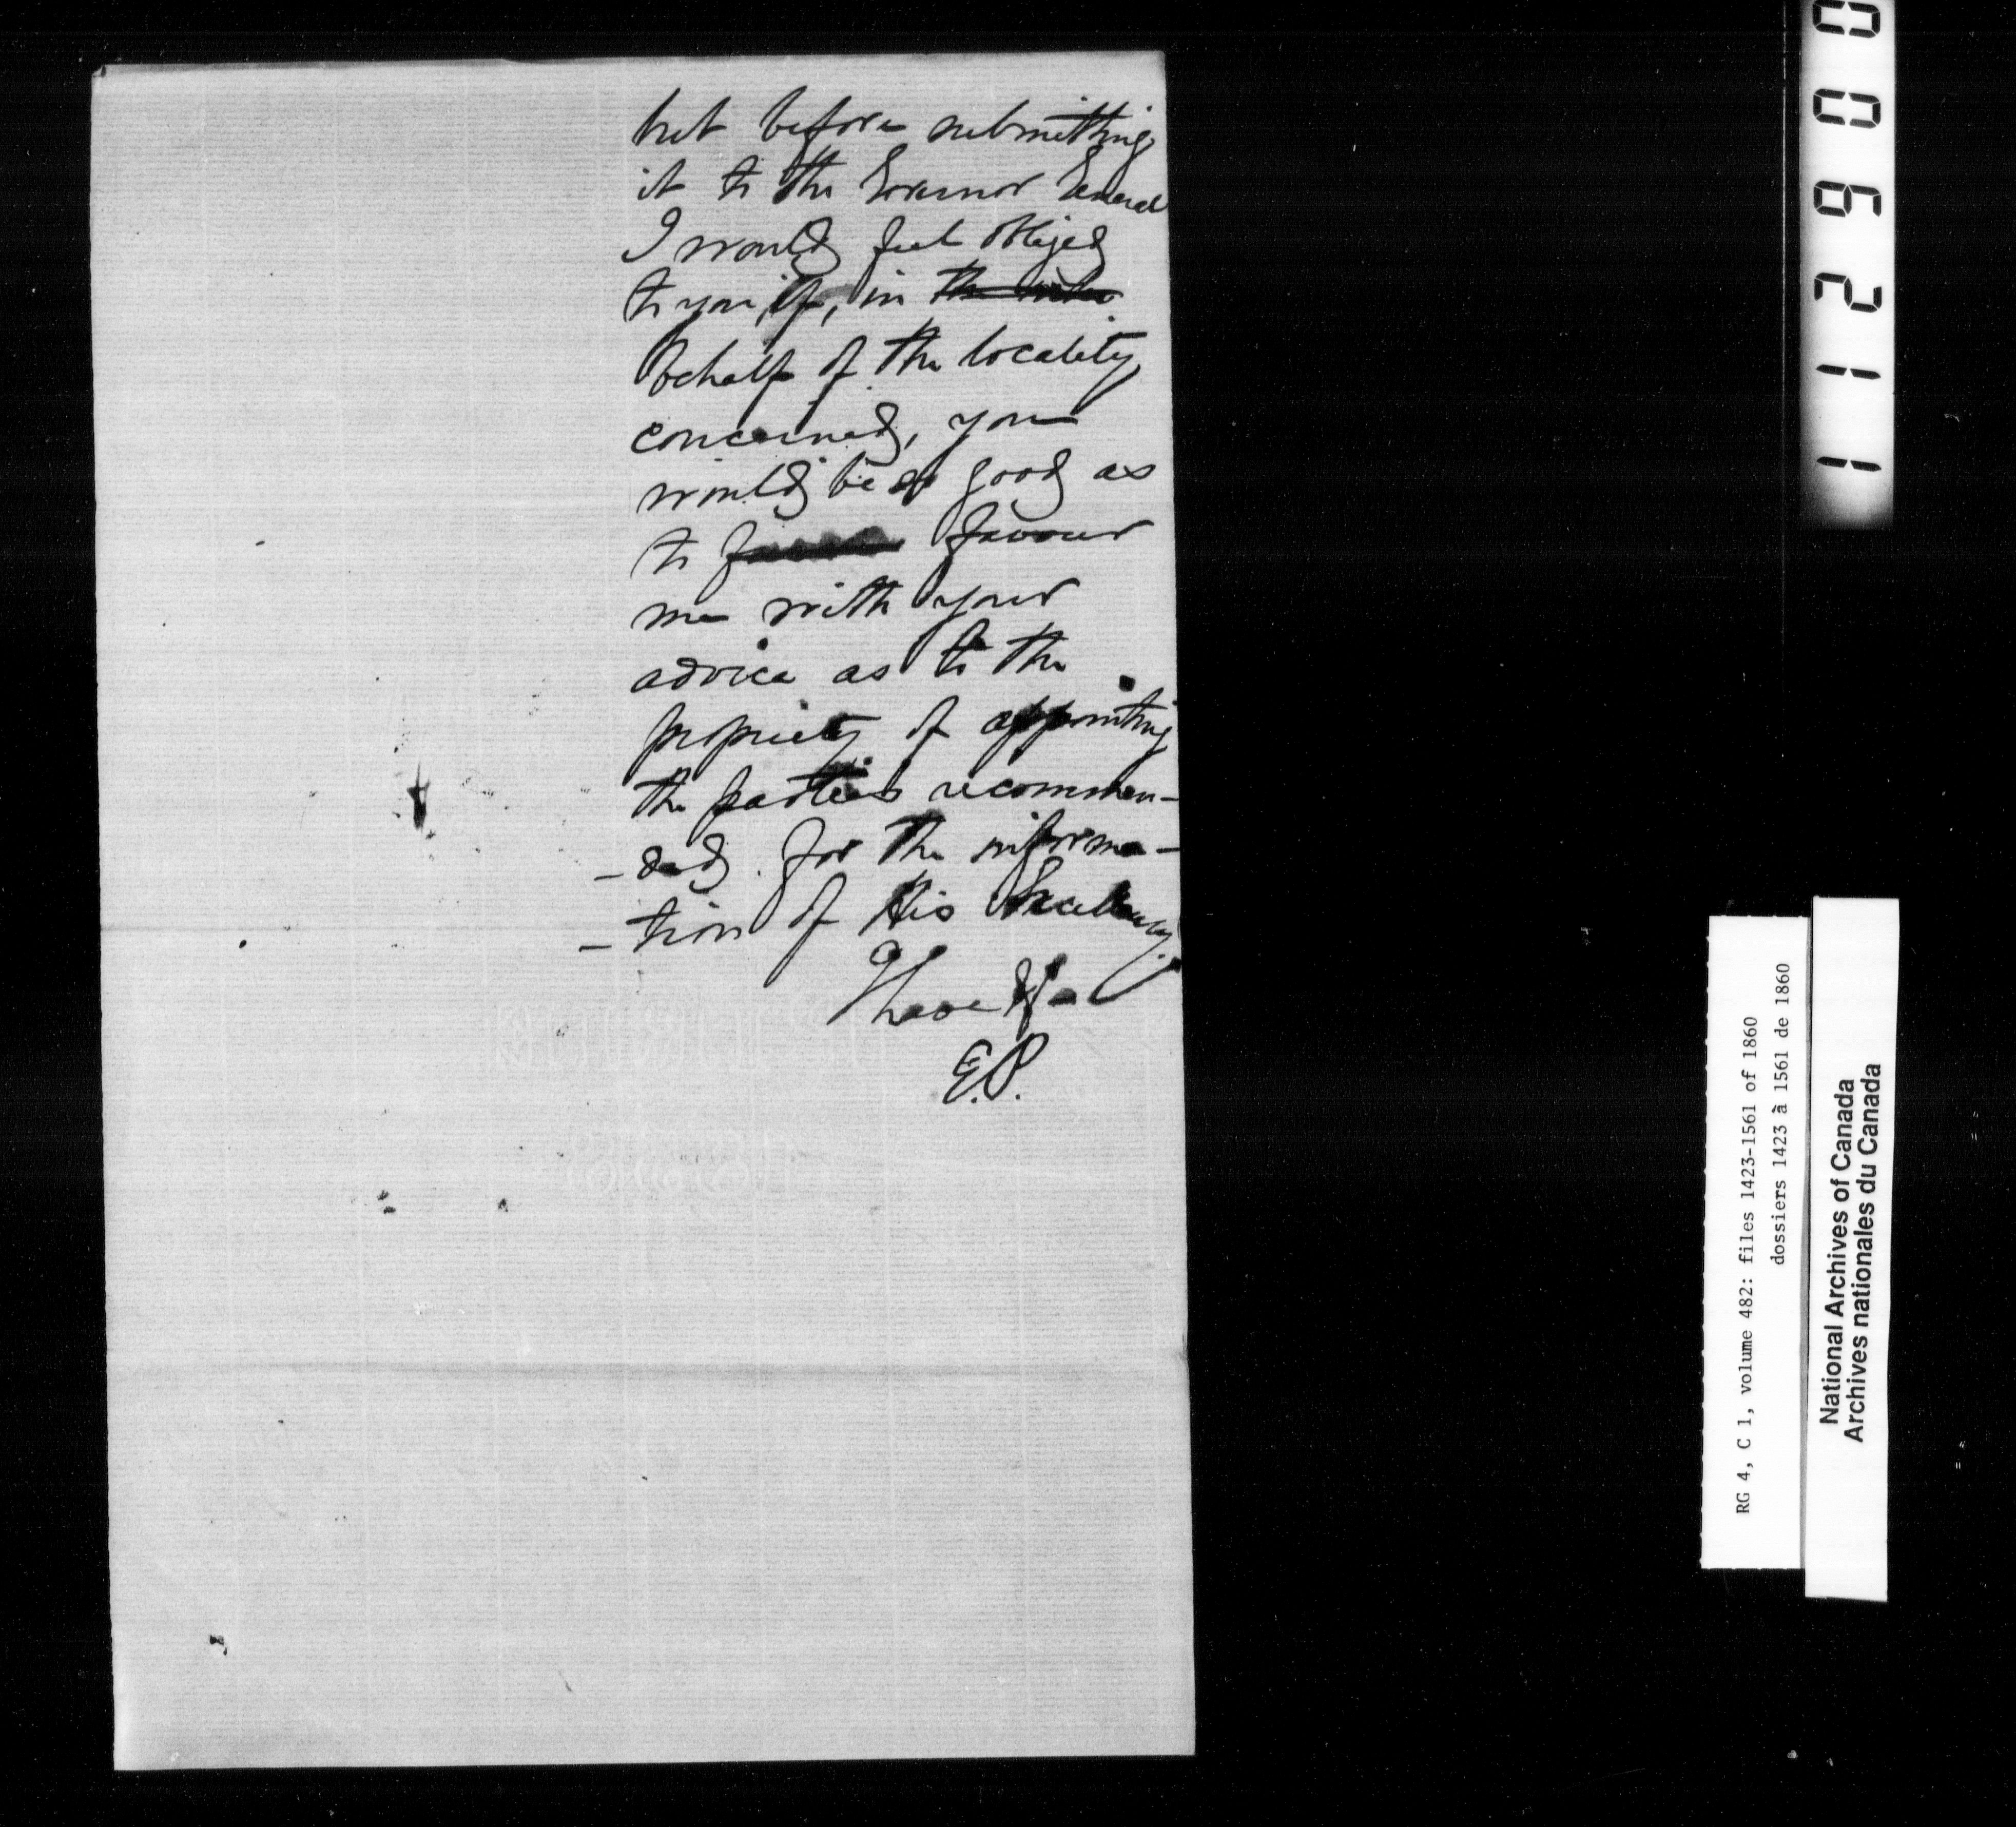 but before submitting
it to the Governor General
I would feel obliged
to you, if, in the
behalf of the locality
concerned, you
would be so good as
to favour
me with your
advice as to the
propriety of appointing
the parties recommen-
-ded for the informa-
-tion of His Excellency.
I have &a
E.P.
112900
RG 4, C 1, volume 482: files 1423-1561 of 1860
dossiers 1423 à 1561 de 1860
National Archives of Canada
Archives nationales du Canada